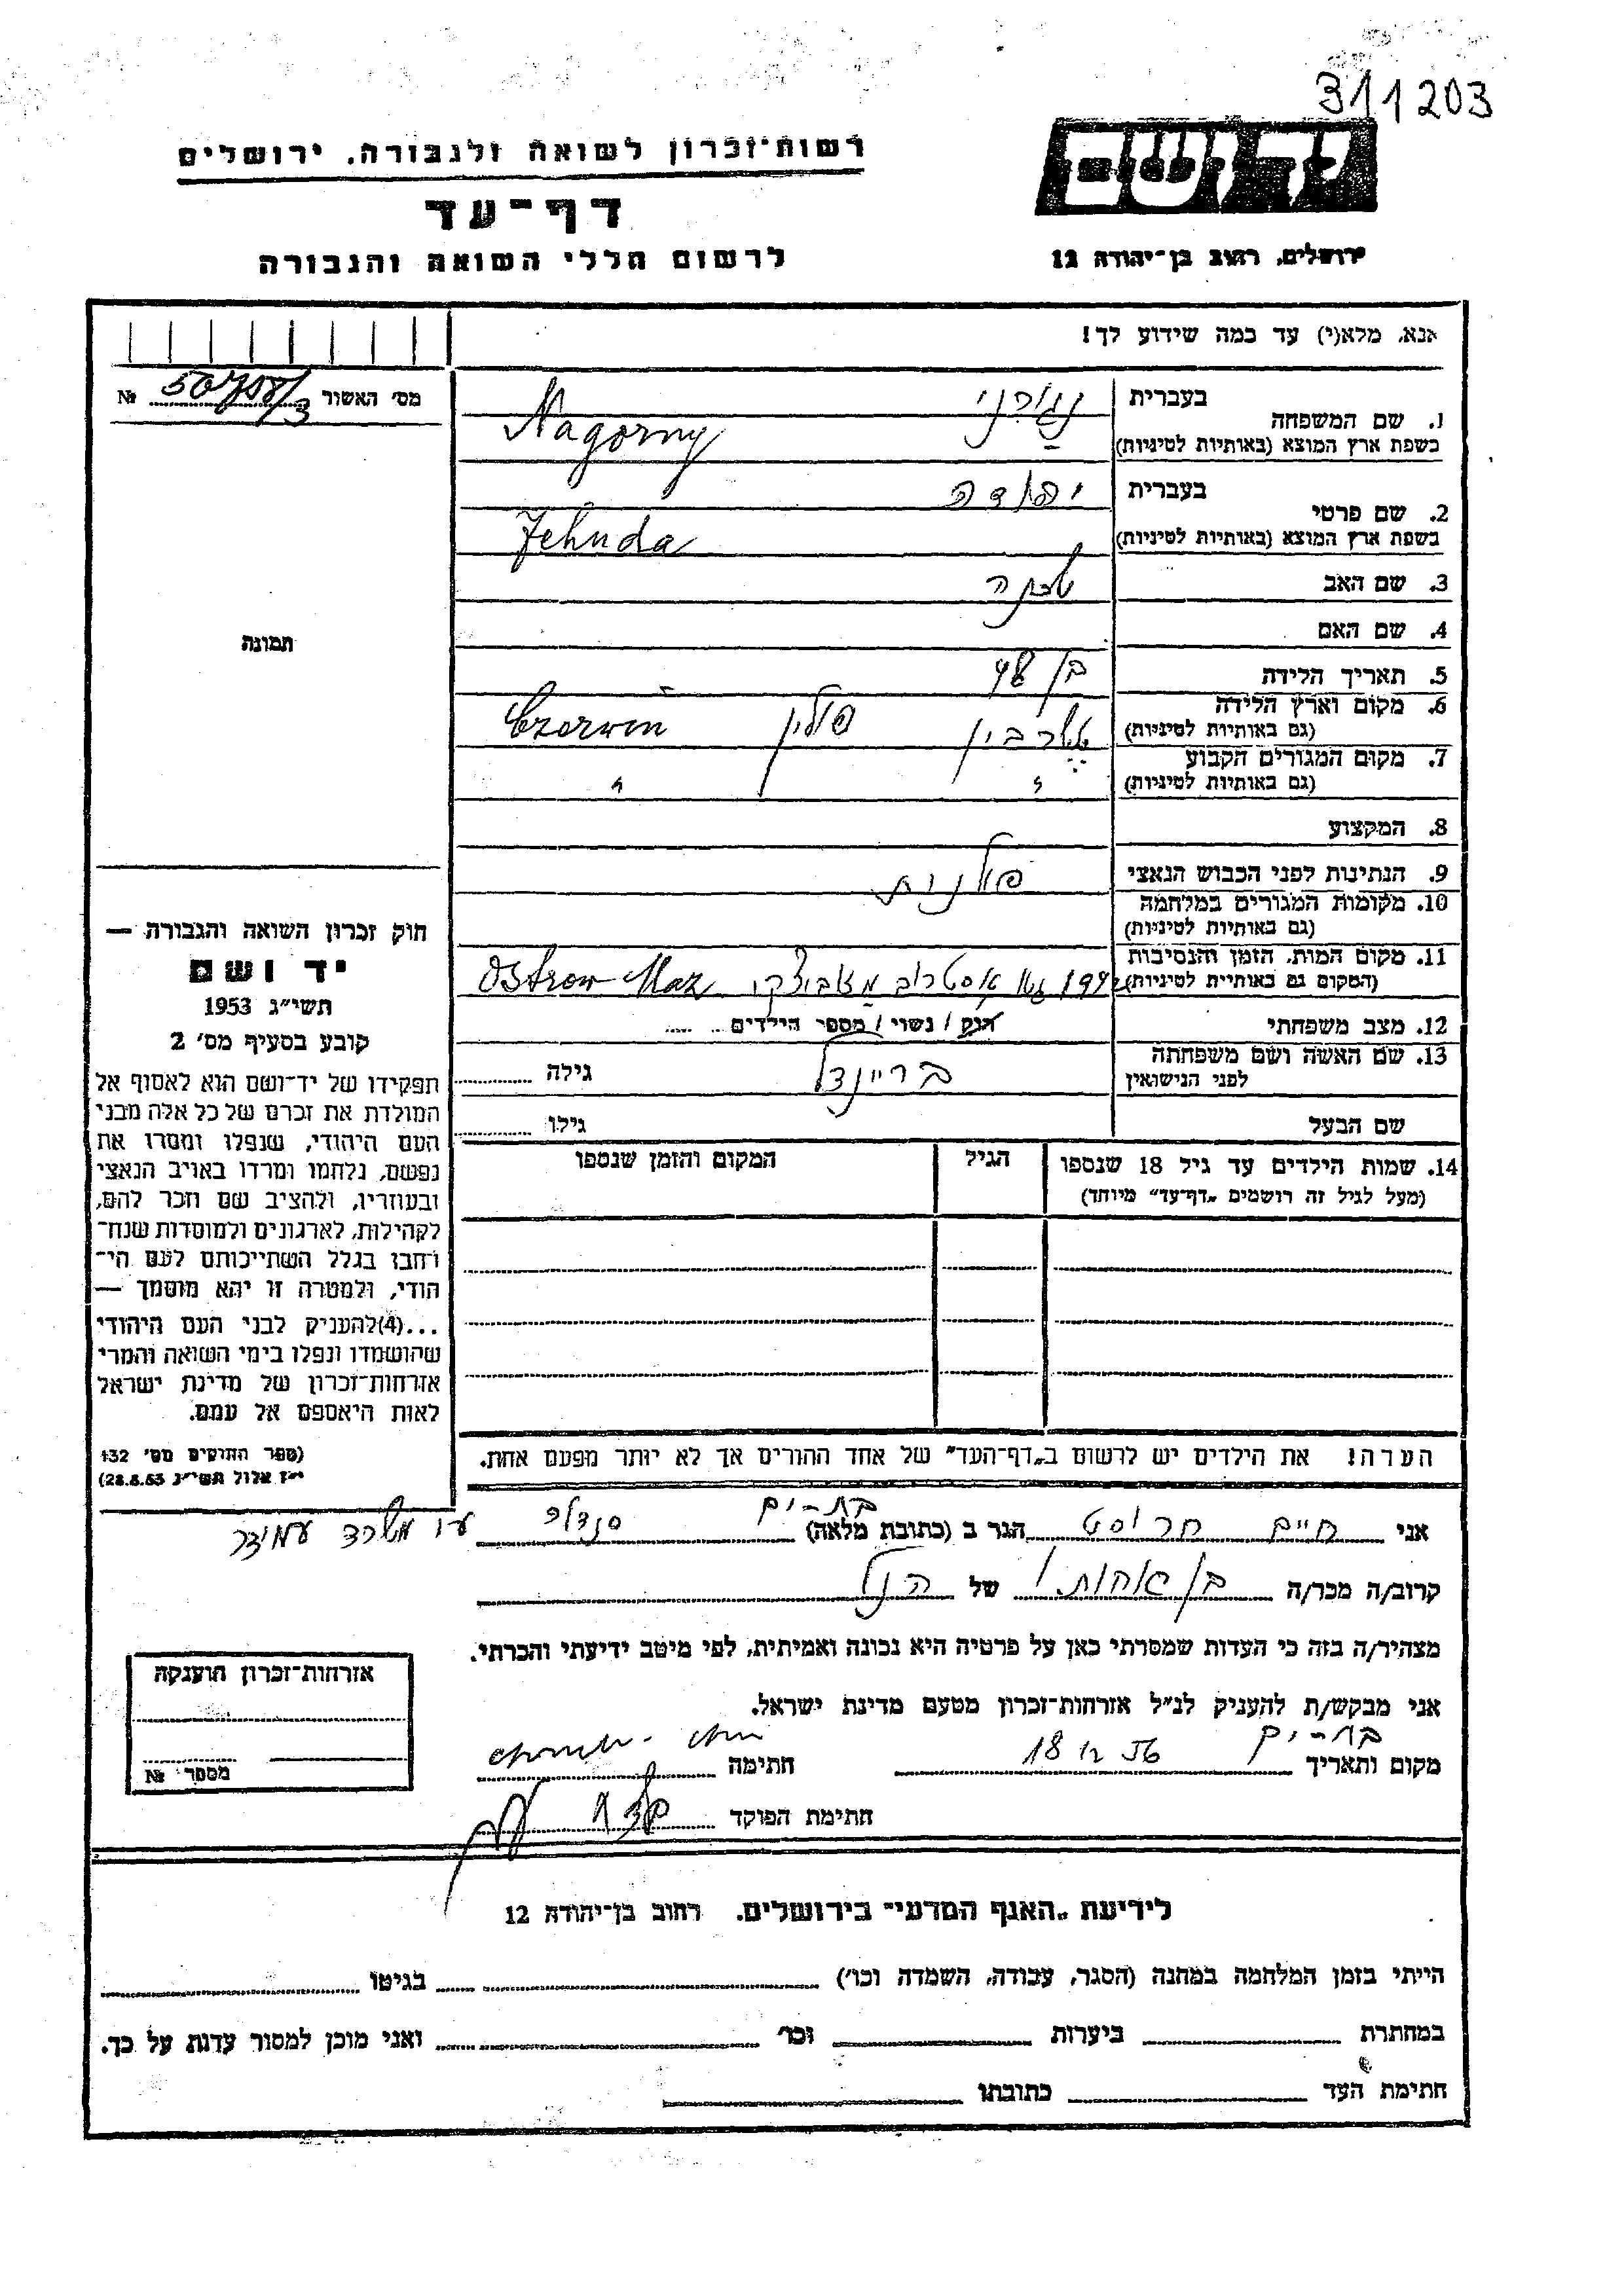 311203
יד ושם
רשות־זכרון לשואה ולגבורה. ירושלים
דף־עד
לרשום חללי השואה והגבורה
ירושלים. רחוב בן־יהודה 12
אנא, מלא(י) עד כמה שידוע לך!
מס' האשור № 50708/3
תמונה
1. שם המשפחה בעברית נגורני
בשפת ארץ המוצא (באותיות לטיניות) Nagorny
2. שם פרטי בעברית יהודה
בשפת ארץ המוצא (באותיות לטיניות) Jehuda
3. שם האב
4. שם האם
5. תאריך הלידה בן 48
6. מקום וארץ הלידה פולין Czerwin
(גם באותיות לטיניות)
7. מקום המגורים הקבוע
(גם באותיות לטיניות) " "
8. המקצוע
9. הנתינות לפני הכבוש הנאצי פולנית
10. מקומות המגורים במלחמה
(גם באותיות לטיניות)
11. מקום המות, הזמן והנסיבות
(המקום גם באותיות לטיניות) אוסטרוב מזוביצקי Ostrow Maz
12. מצב משפחתי רוק / נשוי / מספר הילדים
13. שם האשה ושם משפחתה
לפני הנישואין בריינדל גילה
שם הבעל גילו
14. שמות הילדים עד גיל 18 שנספו הגיל המקום והזמן שנספו
(מעל לגיל זה רושמים „דף־עד" מיוחד)
הערה! את הילדים יש לרשום ב„דף־העד" של אחד ההורים אך לא יותר מפעם אחת.
חוק זכרון השואה והגבורה —
יד ושם
תשי"ג 1953
קובע בסעיף מס' 2
תפקידו של יד־ושם הוא לאסוף אל
המולדת את זכרם של כל אלה מבני
העם היהודי, שנפלו ומסרו את
נפשם, נלחמו ומרדו באויב הנאצי
ובעוזריו, ולהציב שם וזכר להם,
לקהילות, לארגונים ולמוסדות שנח־
רחבו בגלל השתייכותם לעם הי־
הודי, ולמטרה זו יהא מוסמך —
...(4)להעניק לבני העם היהודי
שהושמדו ונפלו בימי השואה והמרי
אזרחות־זכרון של מדינת ישראל
לאות היאספם אל עמם.
(ספר החוקים מס' 132
י"ז אלול תשי"ג 28.8.53)
אני חיים חרוסט הגר ב (כתובת מלאה) בת-ים
קרוב/ה מכר/ה בן אחותו של הנ"ל
מצהיר/ה בזה כי העדות שמסרתי כאן על פרטיה היא נכונה ואמיתית, לפי מיטב ידיעתי והכרתי.
אני מבקש/ת להעניק לנ"ל אזרחות־זכרון מטעם מדינת ישראל.
מקום ותאריך בת-ים 18 12 56 חתימה
חתימת הפוקד
אזרחות־זכרון הוענקה
מספר №
לידיעת „האגף המדעי" בירושלים. רחוב בן־יהודה 12
הייתי בזמן המלחמה במחנה (הסגר, עבודה, השמדה וכו') בגיטו
במחתרת ביערות וכו' ואני מוכן למסור עדות על כך.
חתימת העד כתובתו